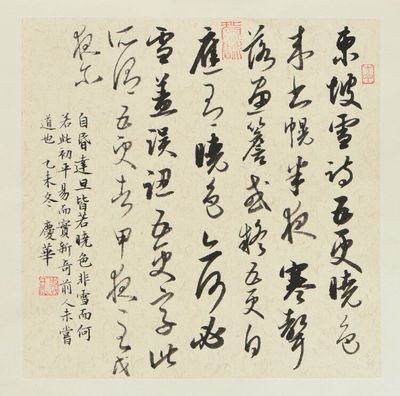 東坡雪詩五更曉色
来書幌半夜寒聲
落畫簷或疑五更自
應有曉色亦何必
雪蓋誤認五更字此
所謂五更者甲夜至戊
夜尔
自昏達旦皆若曉色非雪而何
若此初平易而實新奇前人未嘗
道也 乙未冬 慶華